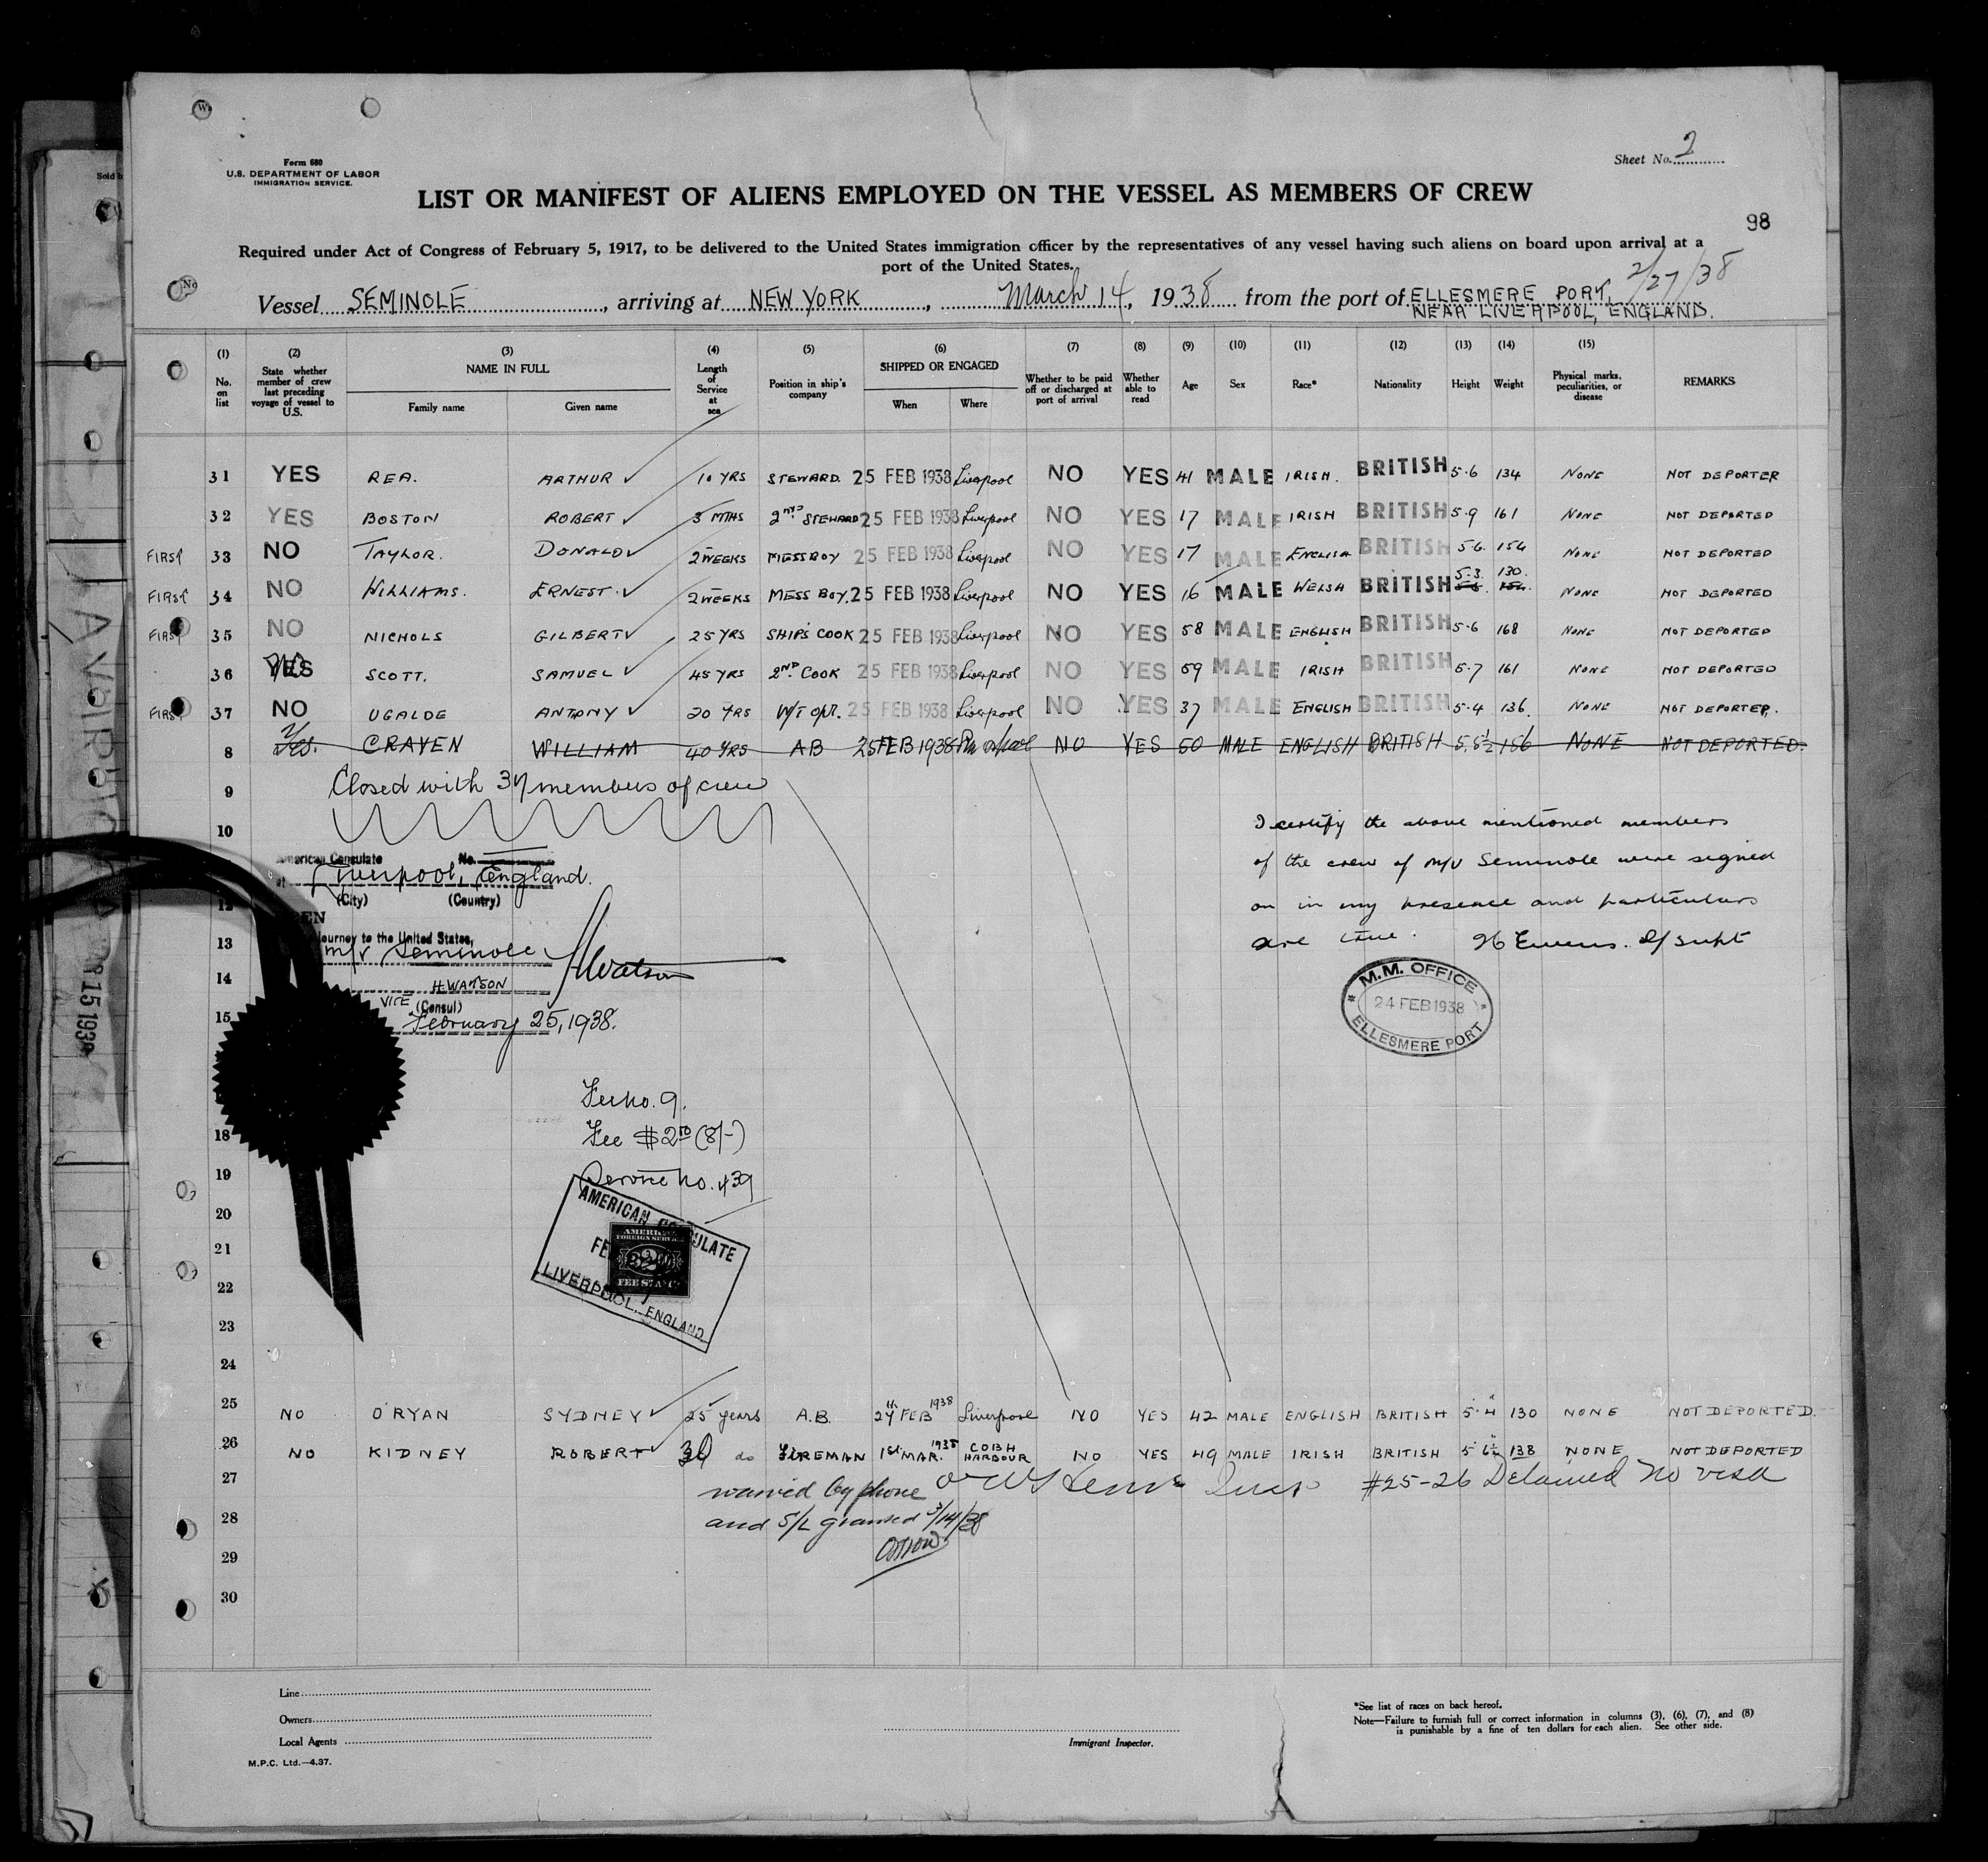 Form 680
U.S. DEPARTMENT OF LABOR
IMMIGRATION SERVICE.
Sheet No. 2
LIST OR MANIFEST OF ALIENS EMPLOYED ON THE VESSEL AS MEMBERS OF CREW
98
Required under Act of Congress of February 5, 1917, to be delivered to the United States immigration officer by the representatives of any vessel having such aliens on board upon arrival at a
port of the United States.
2/27/38
Vessel SEMINOLE, arriving at NEW YORK, March 14, 1938 from the port of ELLESMERE PORT,
NEAR LIVERPOOL, ENGLAND.
(1) No. on list
(2) State whether member of crew last preceding voyage of vessel to U.S.
(3) NAME IN FULL Family name Given name
(4) Length of Service at sea
(5) Position in ship's company
(6) SHIPPED OR ENGAGED When Where
(7) Whether to be paid off or discharged at port of arrival
(8) Whether able to read
(9) Age
(10) Sex
(11) Race*
(12) Nationality
(13) Height
(14) Weight
(15) Physical marks, peculiarities, or disease
REMARKS
31 YES REA. ARTHUR 10 YRS STEWARD. 25 FEB 1938 Liverpool NO YES 41 MALE IRISH. BRITISH 5.6 134 NONE NOT DEPORTER
32 YES BOSTON ROBERT 3 MTHS 2ND STEWARD 25 FEB 1938 Liverpool NO YES 17 MALE IRISH BRITISH 5.9 161 NONE NOT DEPORTED
FIRST 33 NO TAYLOR. DONALD 2 WEEKS MESSBOY 25 FEB 1938 Liverpool NO YES 17 MALE ENGLISH BRITISH 5.6. 154 NONE NOT DEPORTED
FIRST 34 NO WILLIAMS. ERNEST. 2 WEEKS MESS BOY. 25 FEB 1938 Liverpool NO YES 16 MALE WELSH BRITISH 5.3. 130. NONE NOT DEPORTED
FIRST 35 NO NICHOLS GILBERT 25 YRS SHIPS COOK 25 FEB 1938 Liverpool NO YES 58 MALE ENGLISH BRITISH 5.6 168 NONE NOT DEPORTED
36 YES NO SCOTT. SAMUEL 45 YRS 2ND COOK 25 FEB 1938 Liverpool NO YES 59 MALE IRISH BRITISH 5.7 161 NONE NOT DEPORTED
FIRST 37 NO UGALDE ANTONY 20 YRS W/T OPR. 25 FEB 1938 Liverpool NO YES 37 MALE ENGLISH BRITISH 5.4 136. NONE NOT DEPORTED.
8 Yes. CRAVEN WILLIAM 40 YRS AB 25 FEB 1938 NO YES 50 MALE ENGLISH BRITISH 5.5½ 156 NONE NOT DEPORTED.
9 Closed with 37 members of crew
10
I certify the above mentioned members
of the crew of M/V Seminole were signed
on in my presence and particulars
are true. Ewens. D/Supt
M.M. OFFICE
24 FEB 1938
ELLESMERE PORT
American Consulate No.
Liverpool, England.
(City) (Country)
12
13 journey to the United States,
m/v Seminole
HWatson
14 H. WATSON
VICE (Consul)
15 February 25, 1938.
Fee no. 9.
18 Fee $2.00 (8/-)
19 Service No. 439
AMERICAN CONSULATE
LIVERPOOL, ENGLAND
AMERICAN
FOREIGN SERVICE
FEE STAMP
20
21
22
23
24
25 NO O'RYAN SYDNEY 25 years A.B. 27th FEB 1938 Liverpool NO YES 42 MALE ENGLISH BRITISH 5.4 130 NONE NOT DEPORTED.
26 NO KIDNEY ROBERT 30 do FIREMAN 1st MAR. 1938 COBH HARBOUR NO YES 49 MALE IRISH BRITISH 5 6½ 138 NONE NOT DEPORTED
27 #25-26 Detained no visa
waived by phone
28 and S/L granted 3/14/38
29
30
Line
Owners
Local Agents
M.P.C. Ltd.—4.37.
Immigrant Inspector.
*See list of races on back hereof.
Note—Failure to furnish full or correct information in columns (3), (6), (7), and (8)
is punishable by a fine of ten dollars for each alien. See other side.